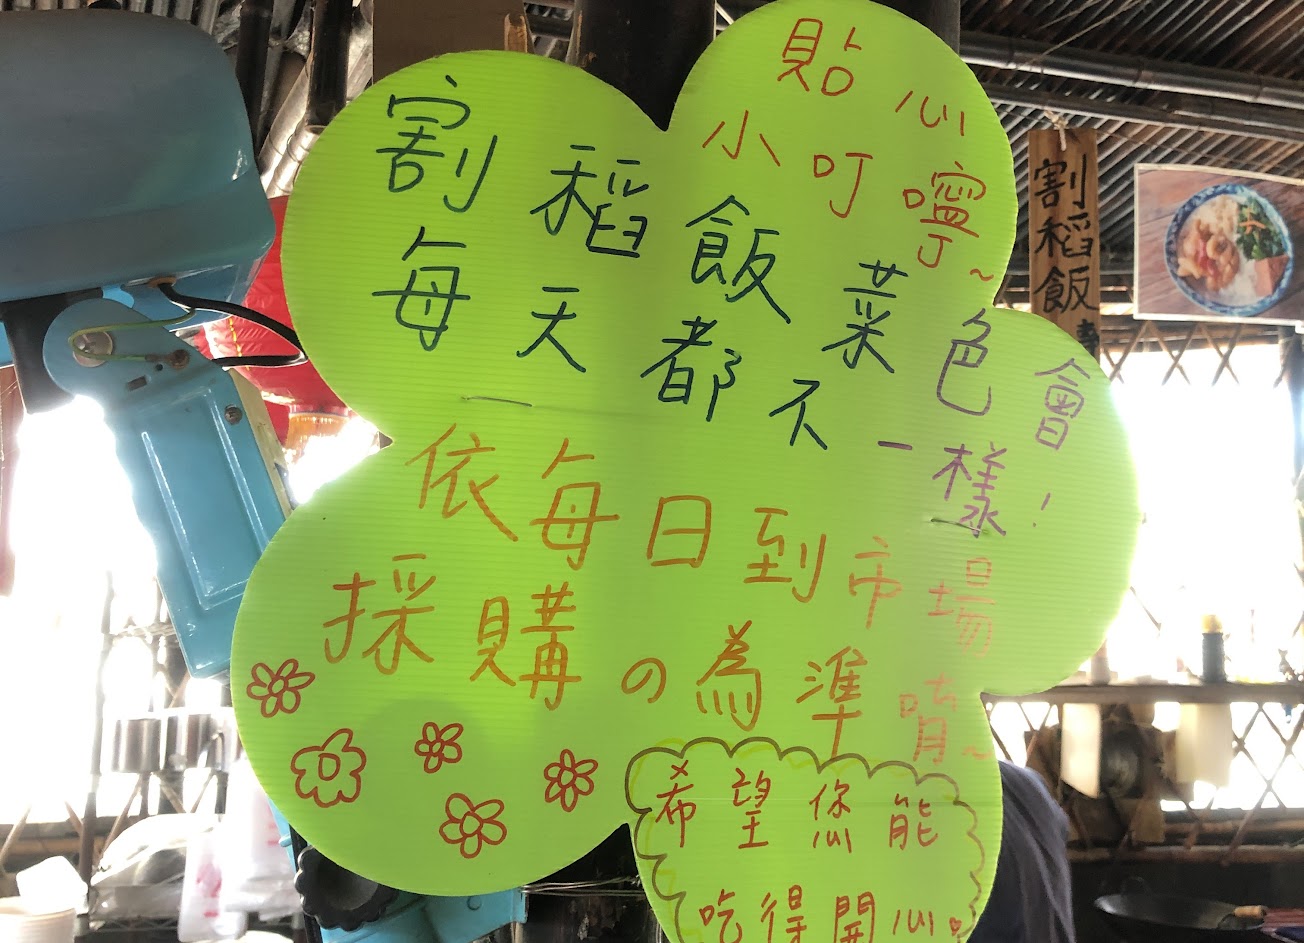 貼心
小叮嚀~
割稻飯菜色會
每天都不一樣!
依每日到市場
採購の為準唷~
希望您能
吃得開心
割稻飯